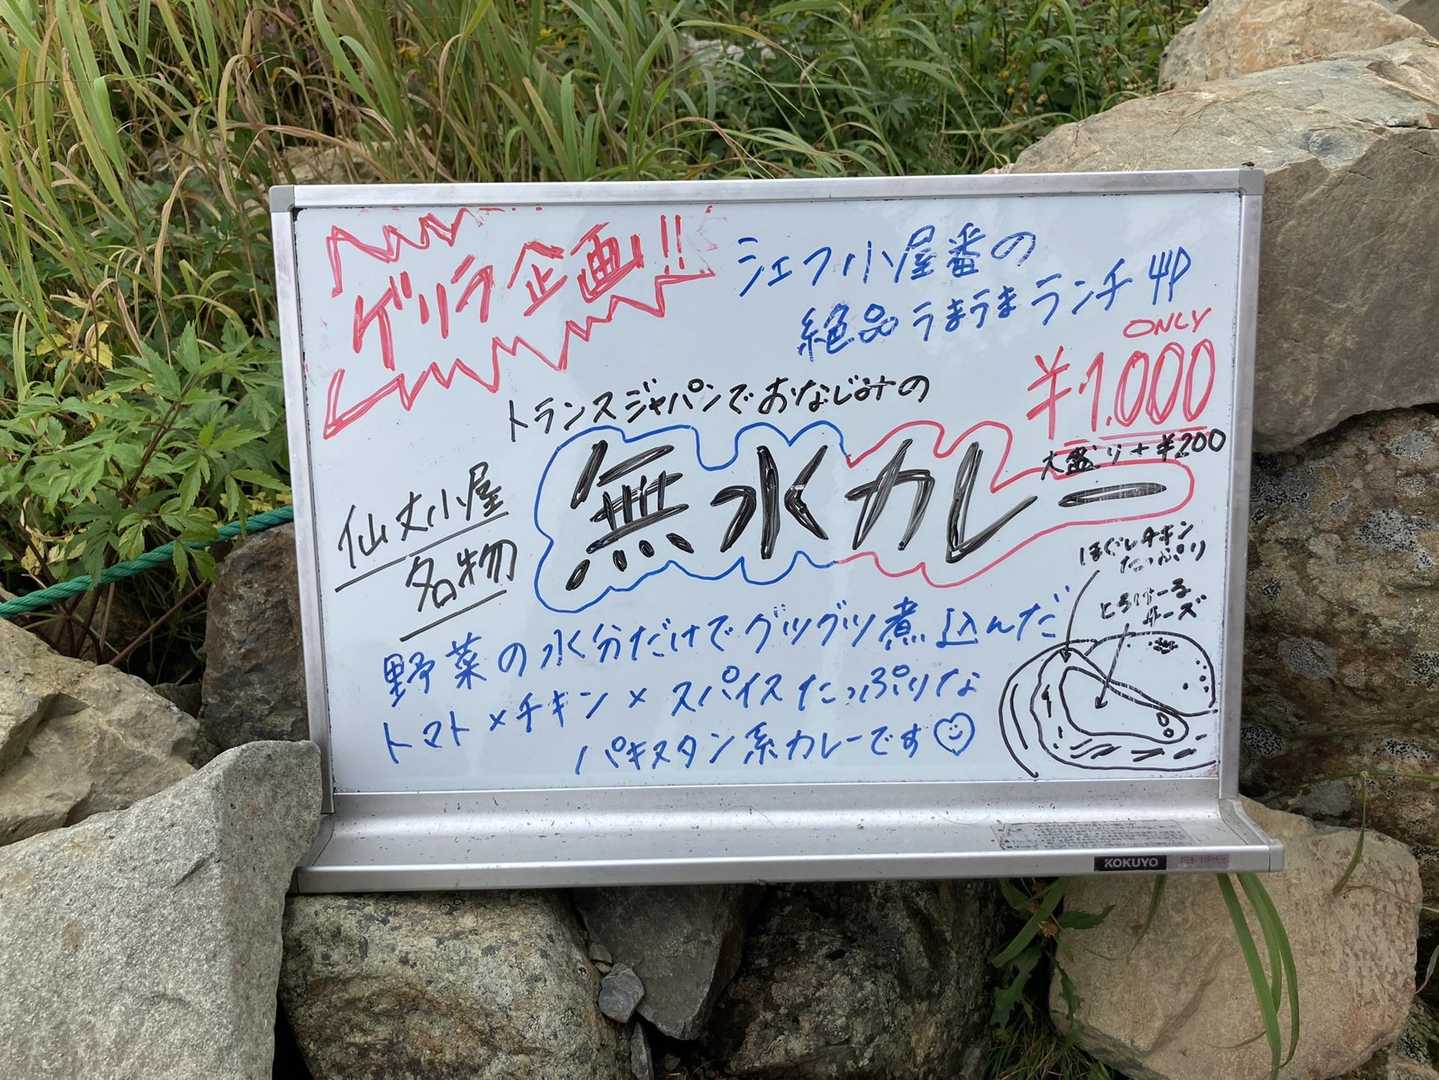 ゲリラ企画!!
シェフ小屋番の
絶品うまうまランチ
ONLY
¥1.000
大盛り+¥200
トランスジャパンでおなじみの
無水カレー
仙丈小屋
名物
ほぐしチキン
たっぷり
とろけーる
チーズ
野菜の水分だけでグツグツ煮込んだ
トマト×チキン×スパイスたっぷりな
パキスタン系カレーです
KOKUYO